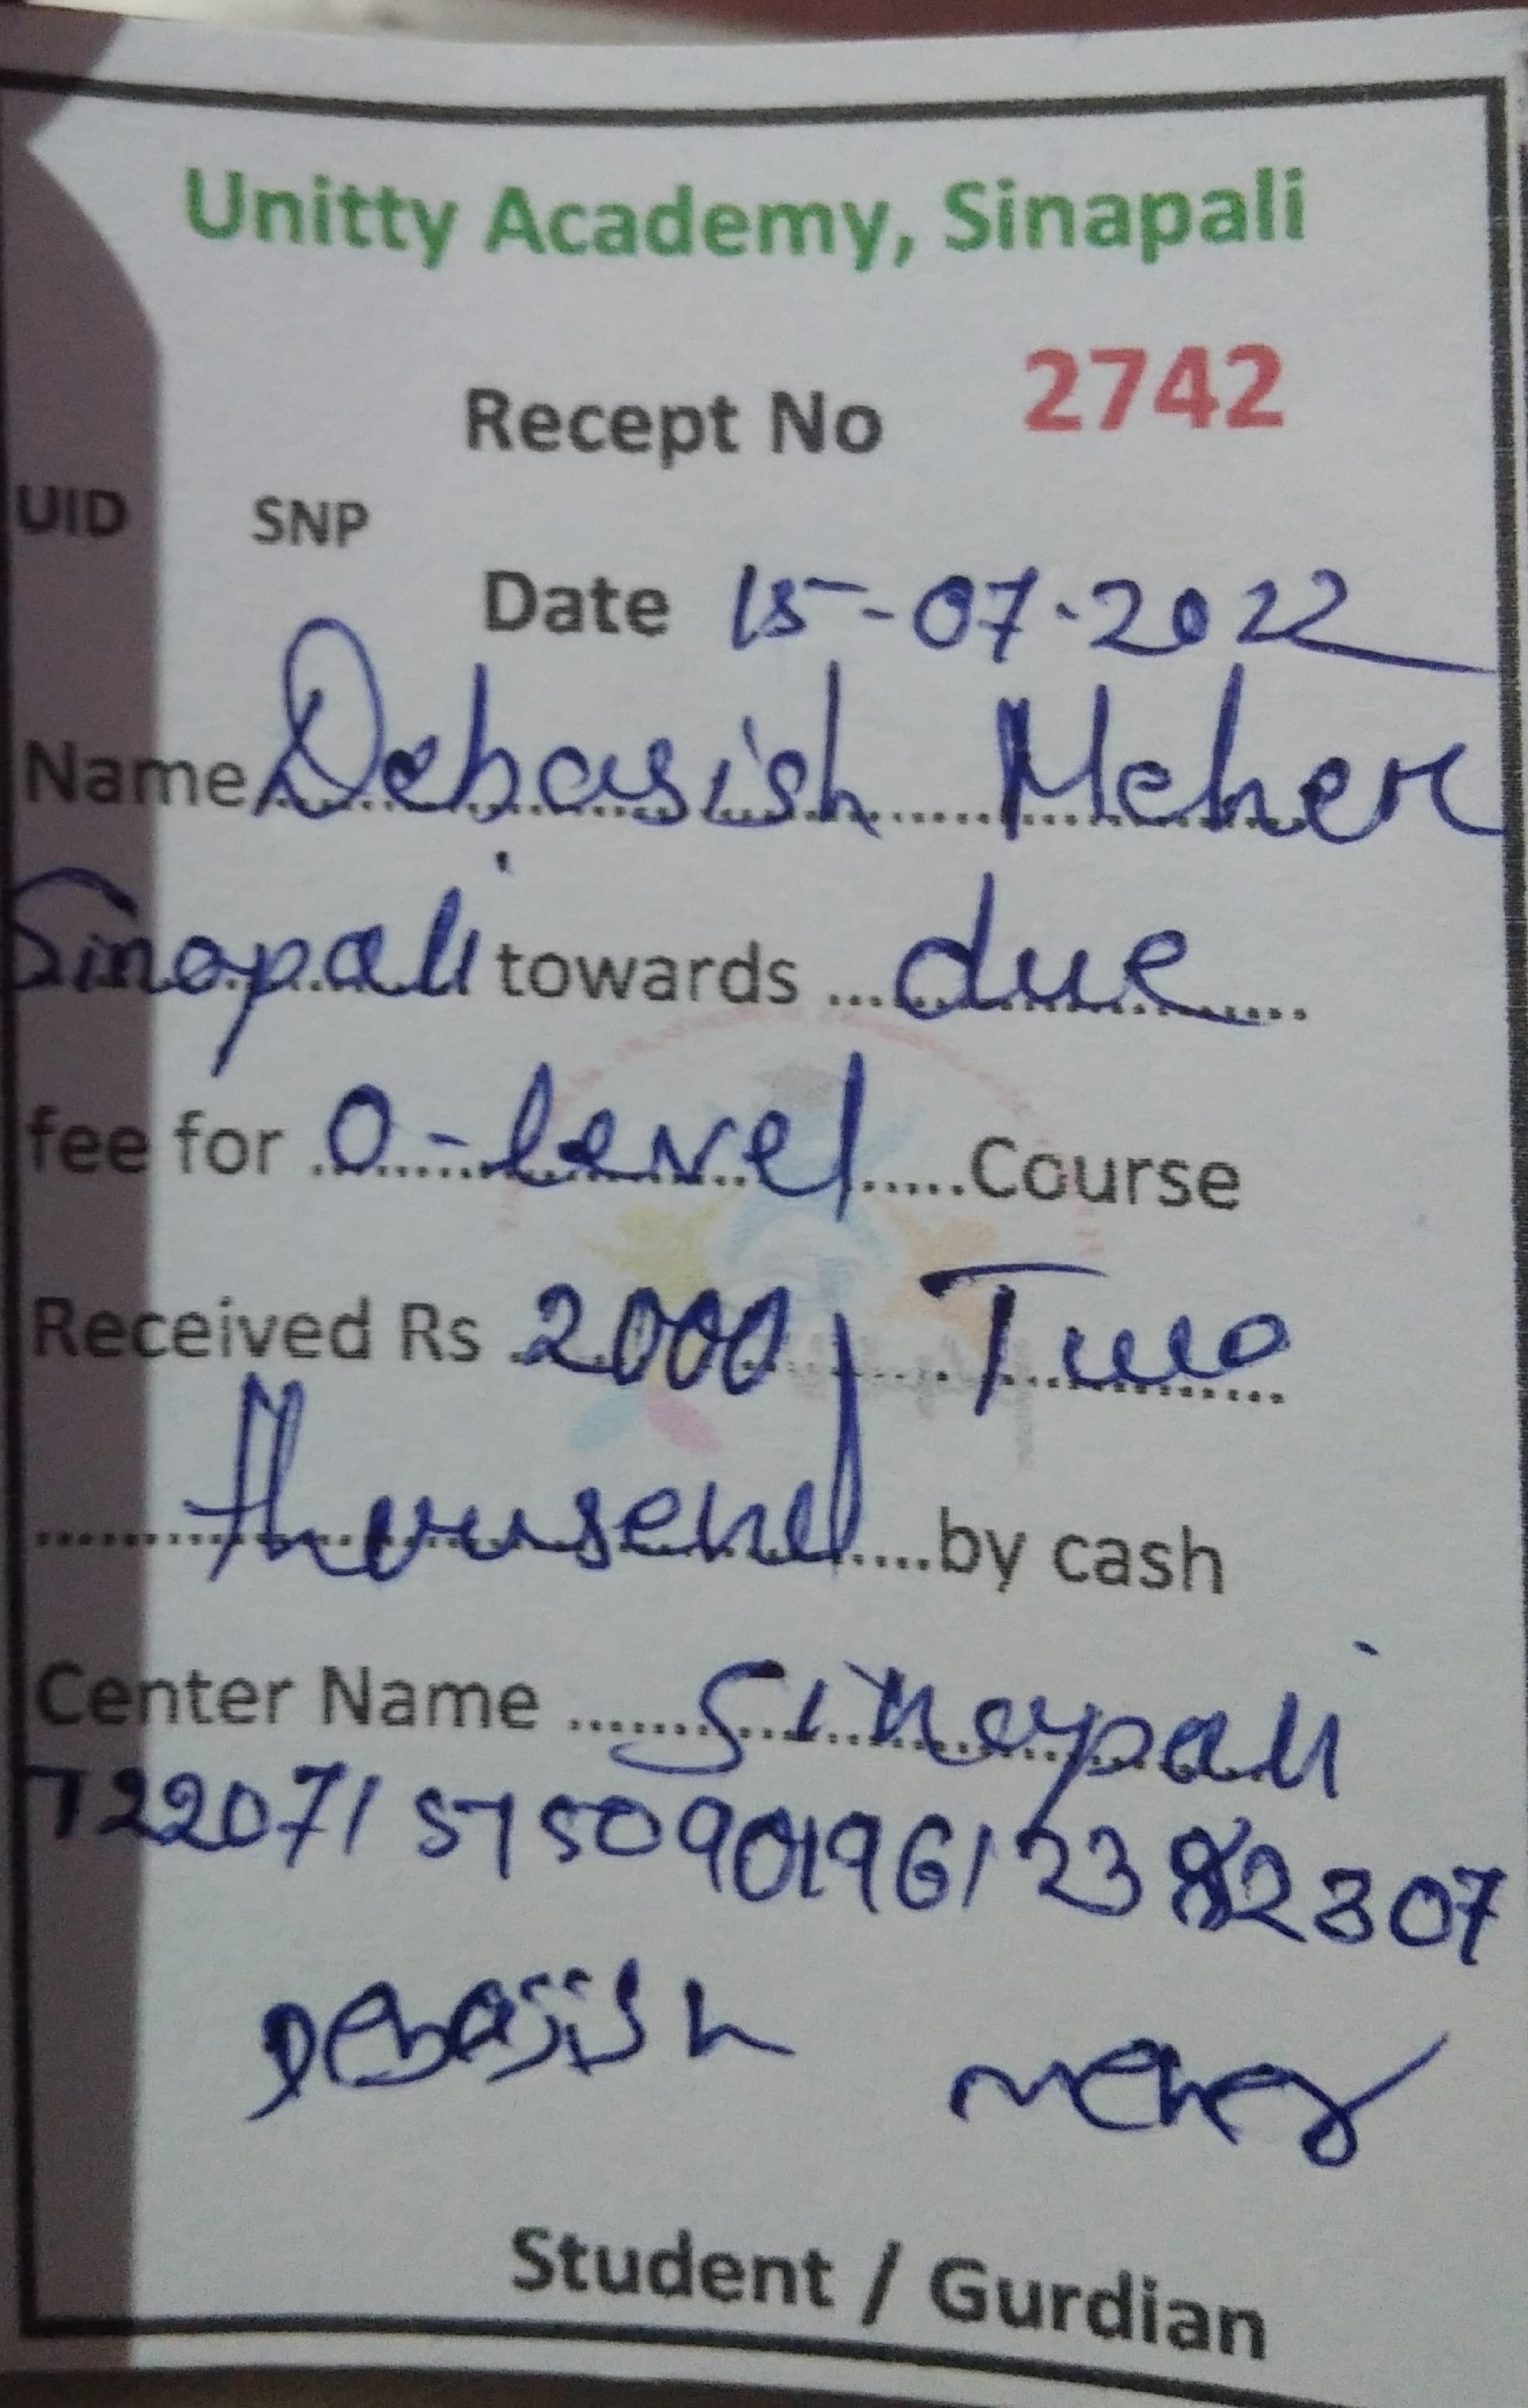 Unitty Academy, Sinapali
Recept No 2742
UID SNP
Date 15-07-2022
Name Debasish Meher
Sinapali towards ... due ...
fee for ... O-level ..... Course
Received Rs 2000/ Two
thousend .... by cash
Center Name ...... Sinapali
T2207151509019612382307
Debasish Meher
Student / Gurdian